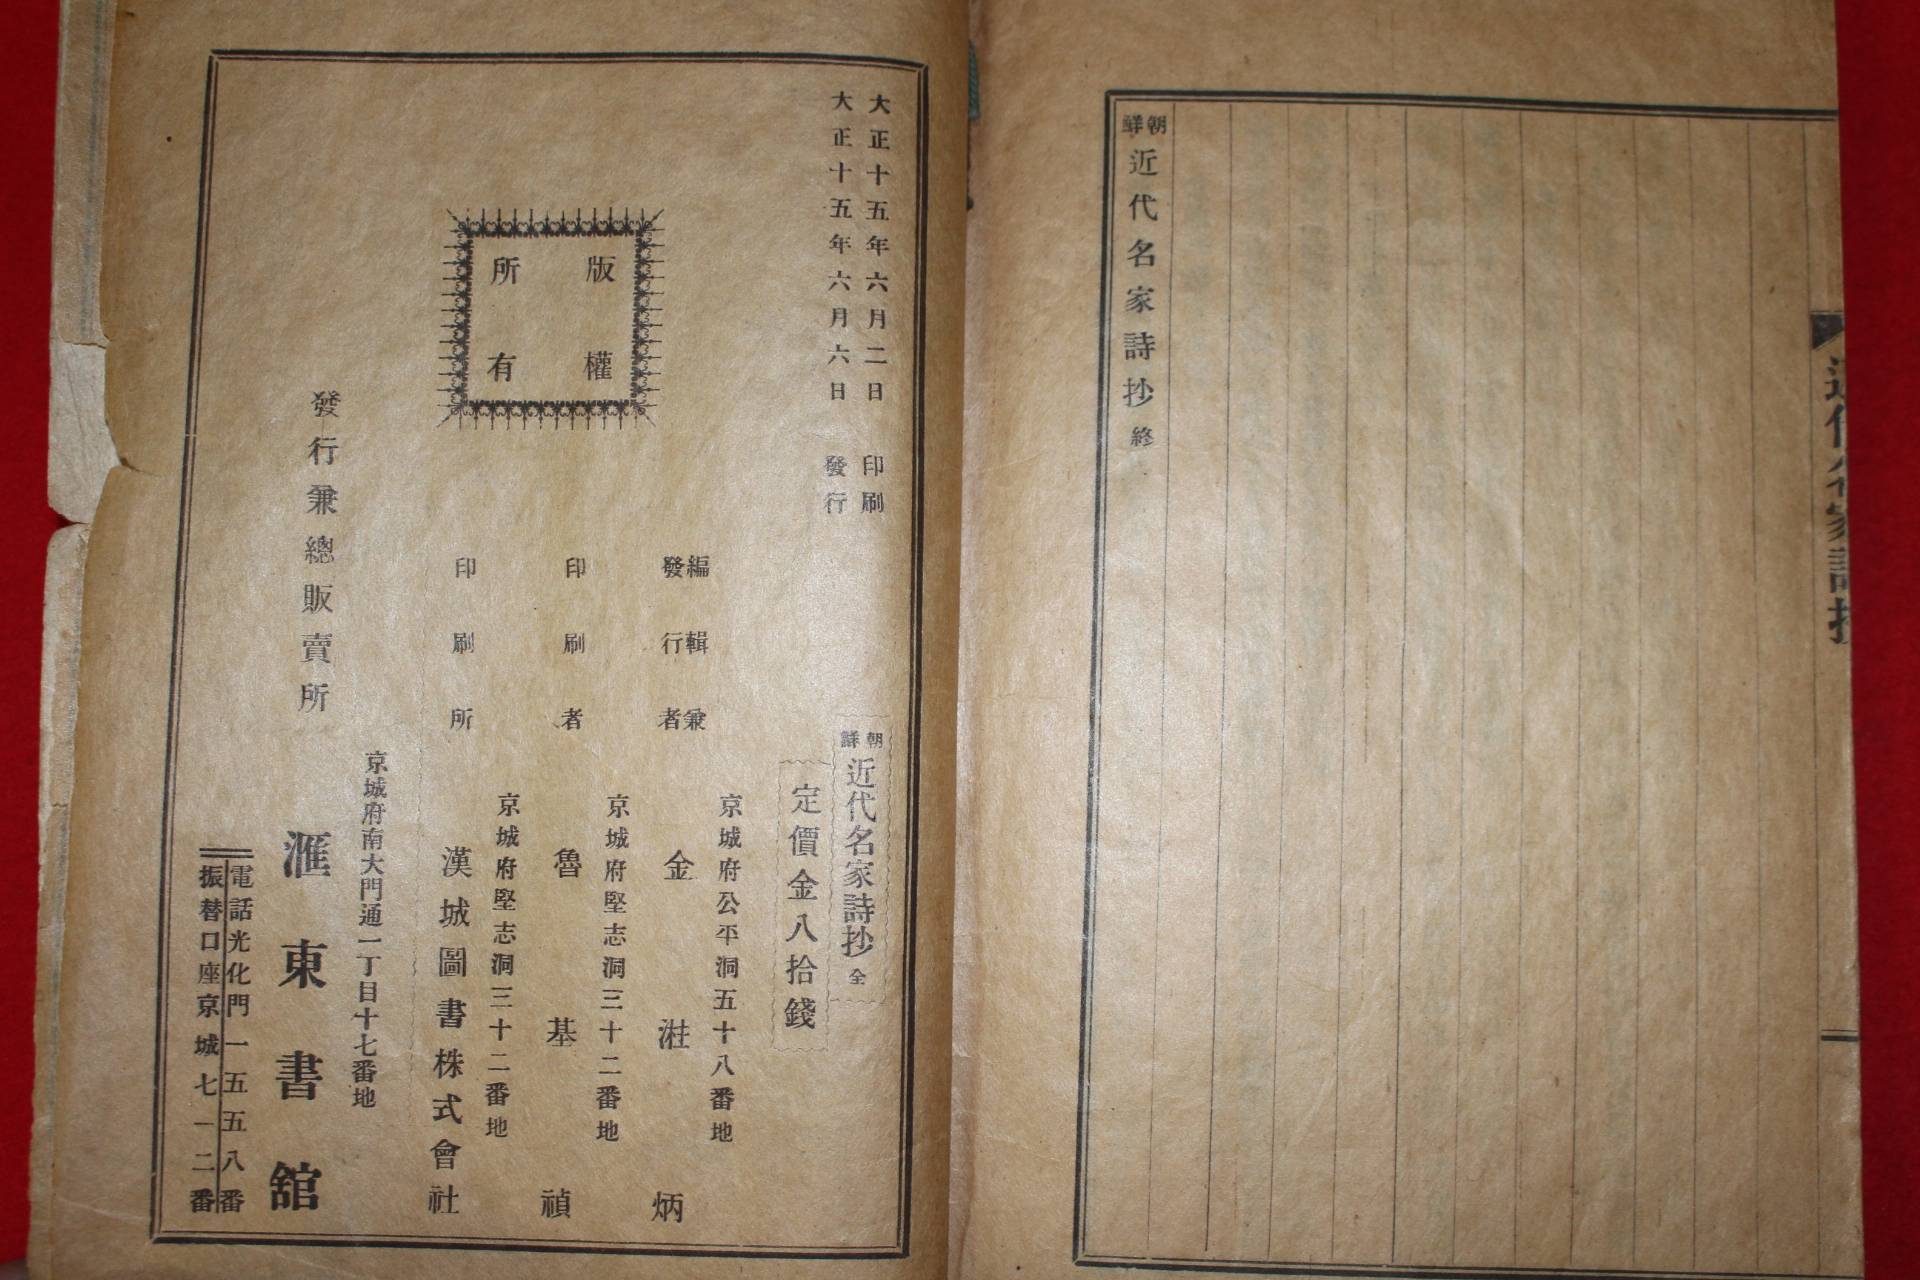 近代名家詩抄
朝鮮 近代名家詩抄 終
大正十五年六月二日 印刷
大正十五年六月六日 發行
版權
所有
朝鮮 近代名家詩抄 全
定價金八拾錢
京城府公平洞五十八番地
編輯兼
發行者 金 炳
京城府堅志洞三十二番地
印刷者 魯基禎
京城府堅志洞三十二番地
印刷所 漢城圖書株式會社
京城府南大門通一丁目十七番地
發行兼總販賣所 滙東書舘
電話光化門一五五八番
振替口座京城七一二番